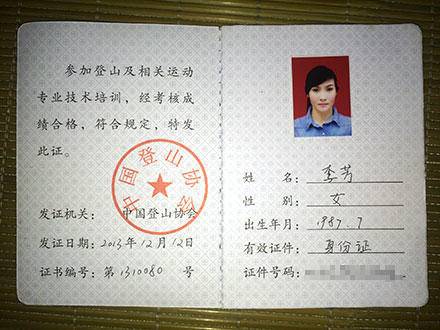 参加登山及相关运动
专业技术培训，经考核成
绩合格，符合规定，特发
此证。
中国登山协会
发证机关： 中国登山协会
发证日期：2013年12月12日
证书编号：第1310080 号
姓 名： 李芳
性 别： 女
出生年月： 1987.7
有效证件： 身份证
证件号码：